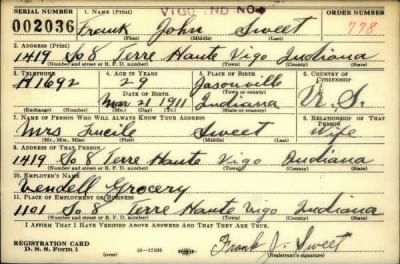 SERIAL NUMBER 1. NAME (Print) VIGO IND NO 4 ORDER NUMBER
002036 Frank John Sweet 778
(First) (Middle) (Last)
2. ADDRESS (Print)
1419 So 8 Terre Haute Vigo Indiana
(Number and street or R. F. D. number) (Town) (County) (State)
3. TELEPHONE 4. AGE IN YEARS 5. PLACE OF BIRTH 6. COUNTRY OF CITIZENSHIP
H1692 29 Jasonville
DATE OF BIRTH (Town or county)
Mar. 21 1911 Indiana U. S.
(Exchange) (Number) (Mo.) (Day) (Yr.) (State or country)
7. NAME OF PERSON WHO WILL ALWAYS KNOW YOUR ADDRESS 8. RELATIONSHIP OF THAT PERSON
Mrs Lucile Sweet Wife
(Mr., Mrs., Miss) (First) (Middle) (Last)
9. ADDRESS OF THAT PERSON
1419 So 8 Terre Haute Vigo Indiana
(Number and street or R. F. D. number) (Town) (County) (State)
10. EMPLOYER'S NAME
Wendell Grocery
11. PLACE OF EMPLOYMENT OR BUSINESS
1101 So 8 Terre Haute Vigo Indiana
(Number and street or R. F. D. number) (Town) (County) (State)
I AFFIRM THAT I HAVE VERIFIED ABOVE ANSWERS AND THAT THEY ARE TRUE.
REGISTRATION CARD
D. S. S. Form 1 Frank J. Sweet
(Registrant's signature)